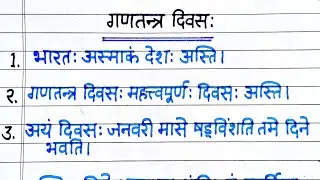 गणतन्त्र दिवसः
1. भारतः अस्माकं देशः अस्ति।
२. गणतन्त्र दिवसः महत्त्वपूर्णः दिवसः अस्ति।
3. अयं दिवसः जनवरी मासे षड्विंशति तमे दिने
भवति।